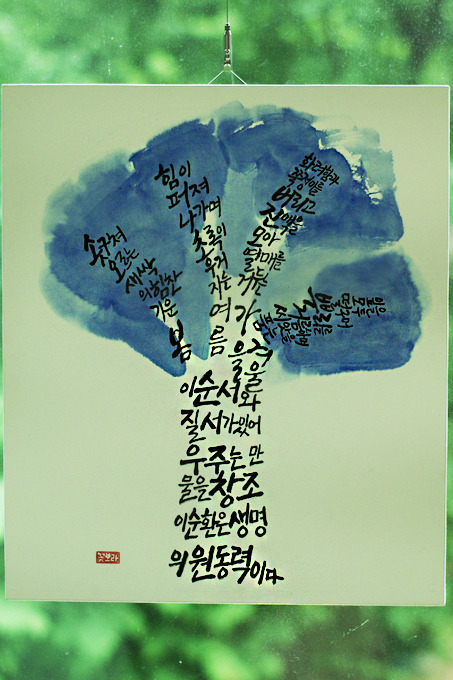 솟구쳐
오르는
새싹
의 힘찬
기운
봄
힘이
퍼져
나가며
초록의
우거
지는
여
름
화려함과
욕정일랑
버리고
진액을
모아
열매를
거두는
가
을
잎을
모두
떨구고
뿌리를
겨
울
이순서와
질서가있어
우주는 만
물을 창조
이순환은 생명
의 원동력이다
꽃보라